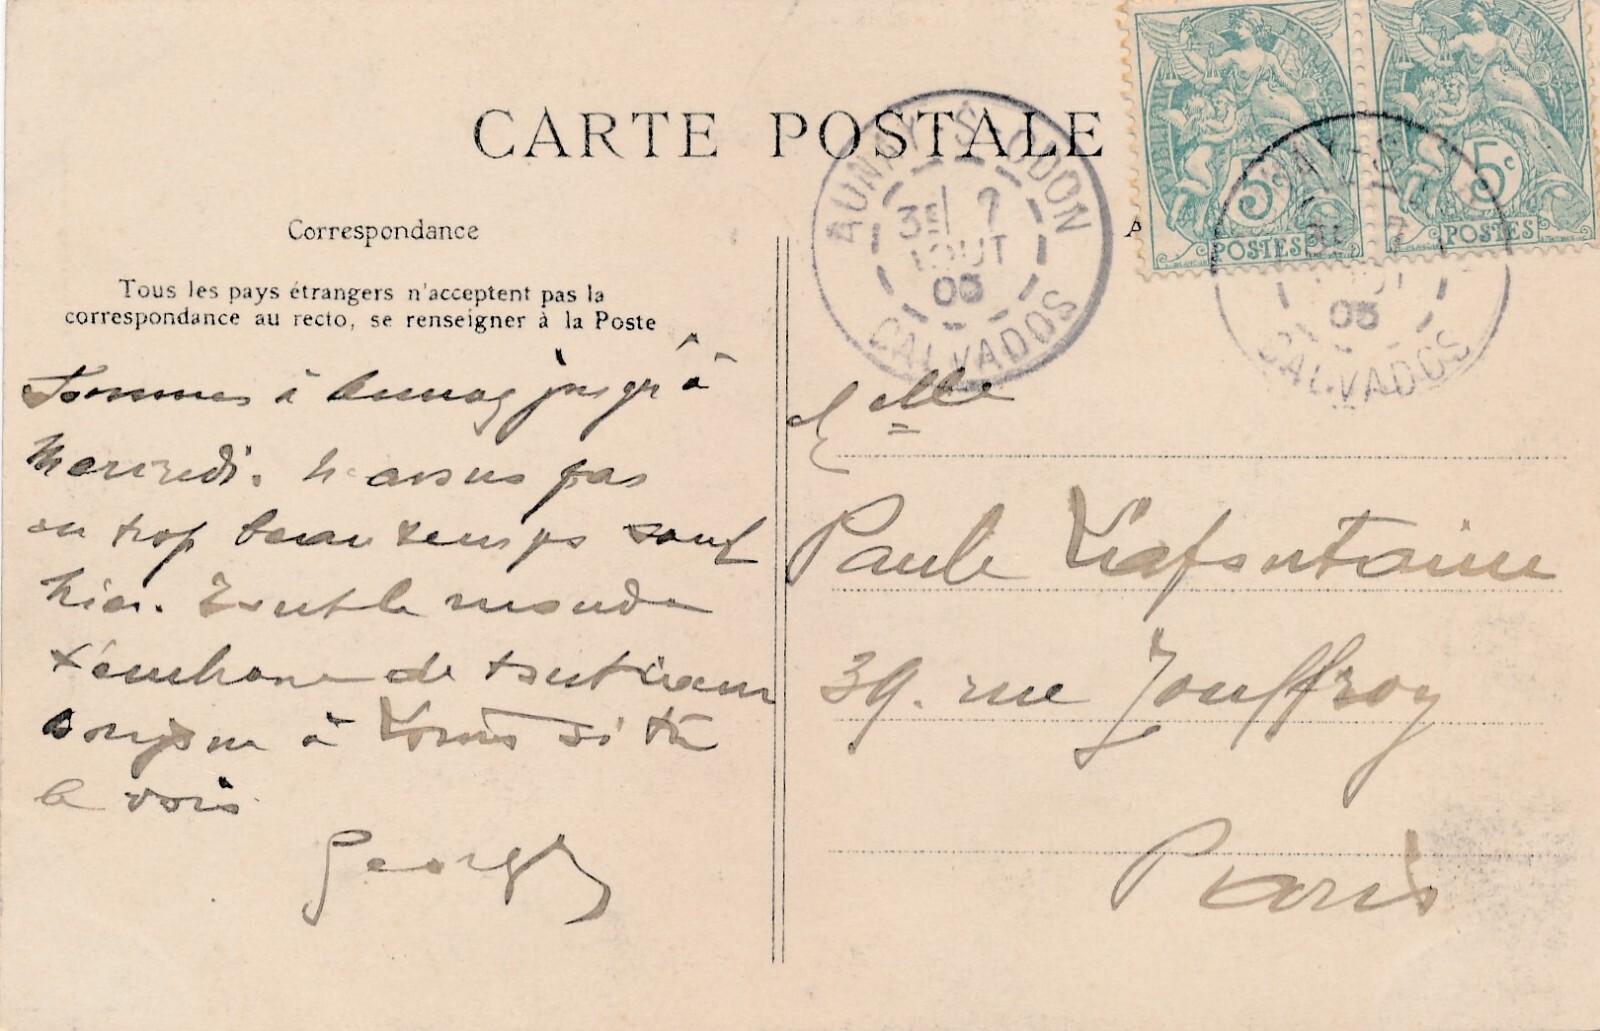 CARTE POSTALE
Correspondance
Tous les pays étrangers n'acceptent pas la
correspondance au recto, se renseigner à la Poste
Sommes à Aunay jusqu'à
Mercredi. N'avons pas
eu trop beau temps sauf
hier. Tout le monde
t'embrasse de
à Louis si tu
le vois
Georges
AUNAY-S-ODON
3E 7
AOUT
05
CALVADOS
FRANÇAISE
5c
POSTES
5c
POSTES
7
05
CALVADOS
Melle
Paule Lafontaine
39. rue Jouffroy
Paris